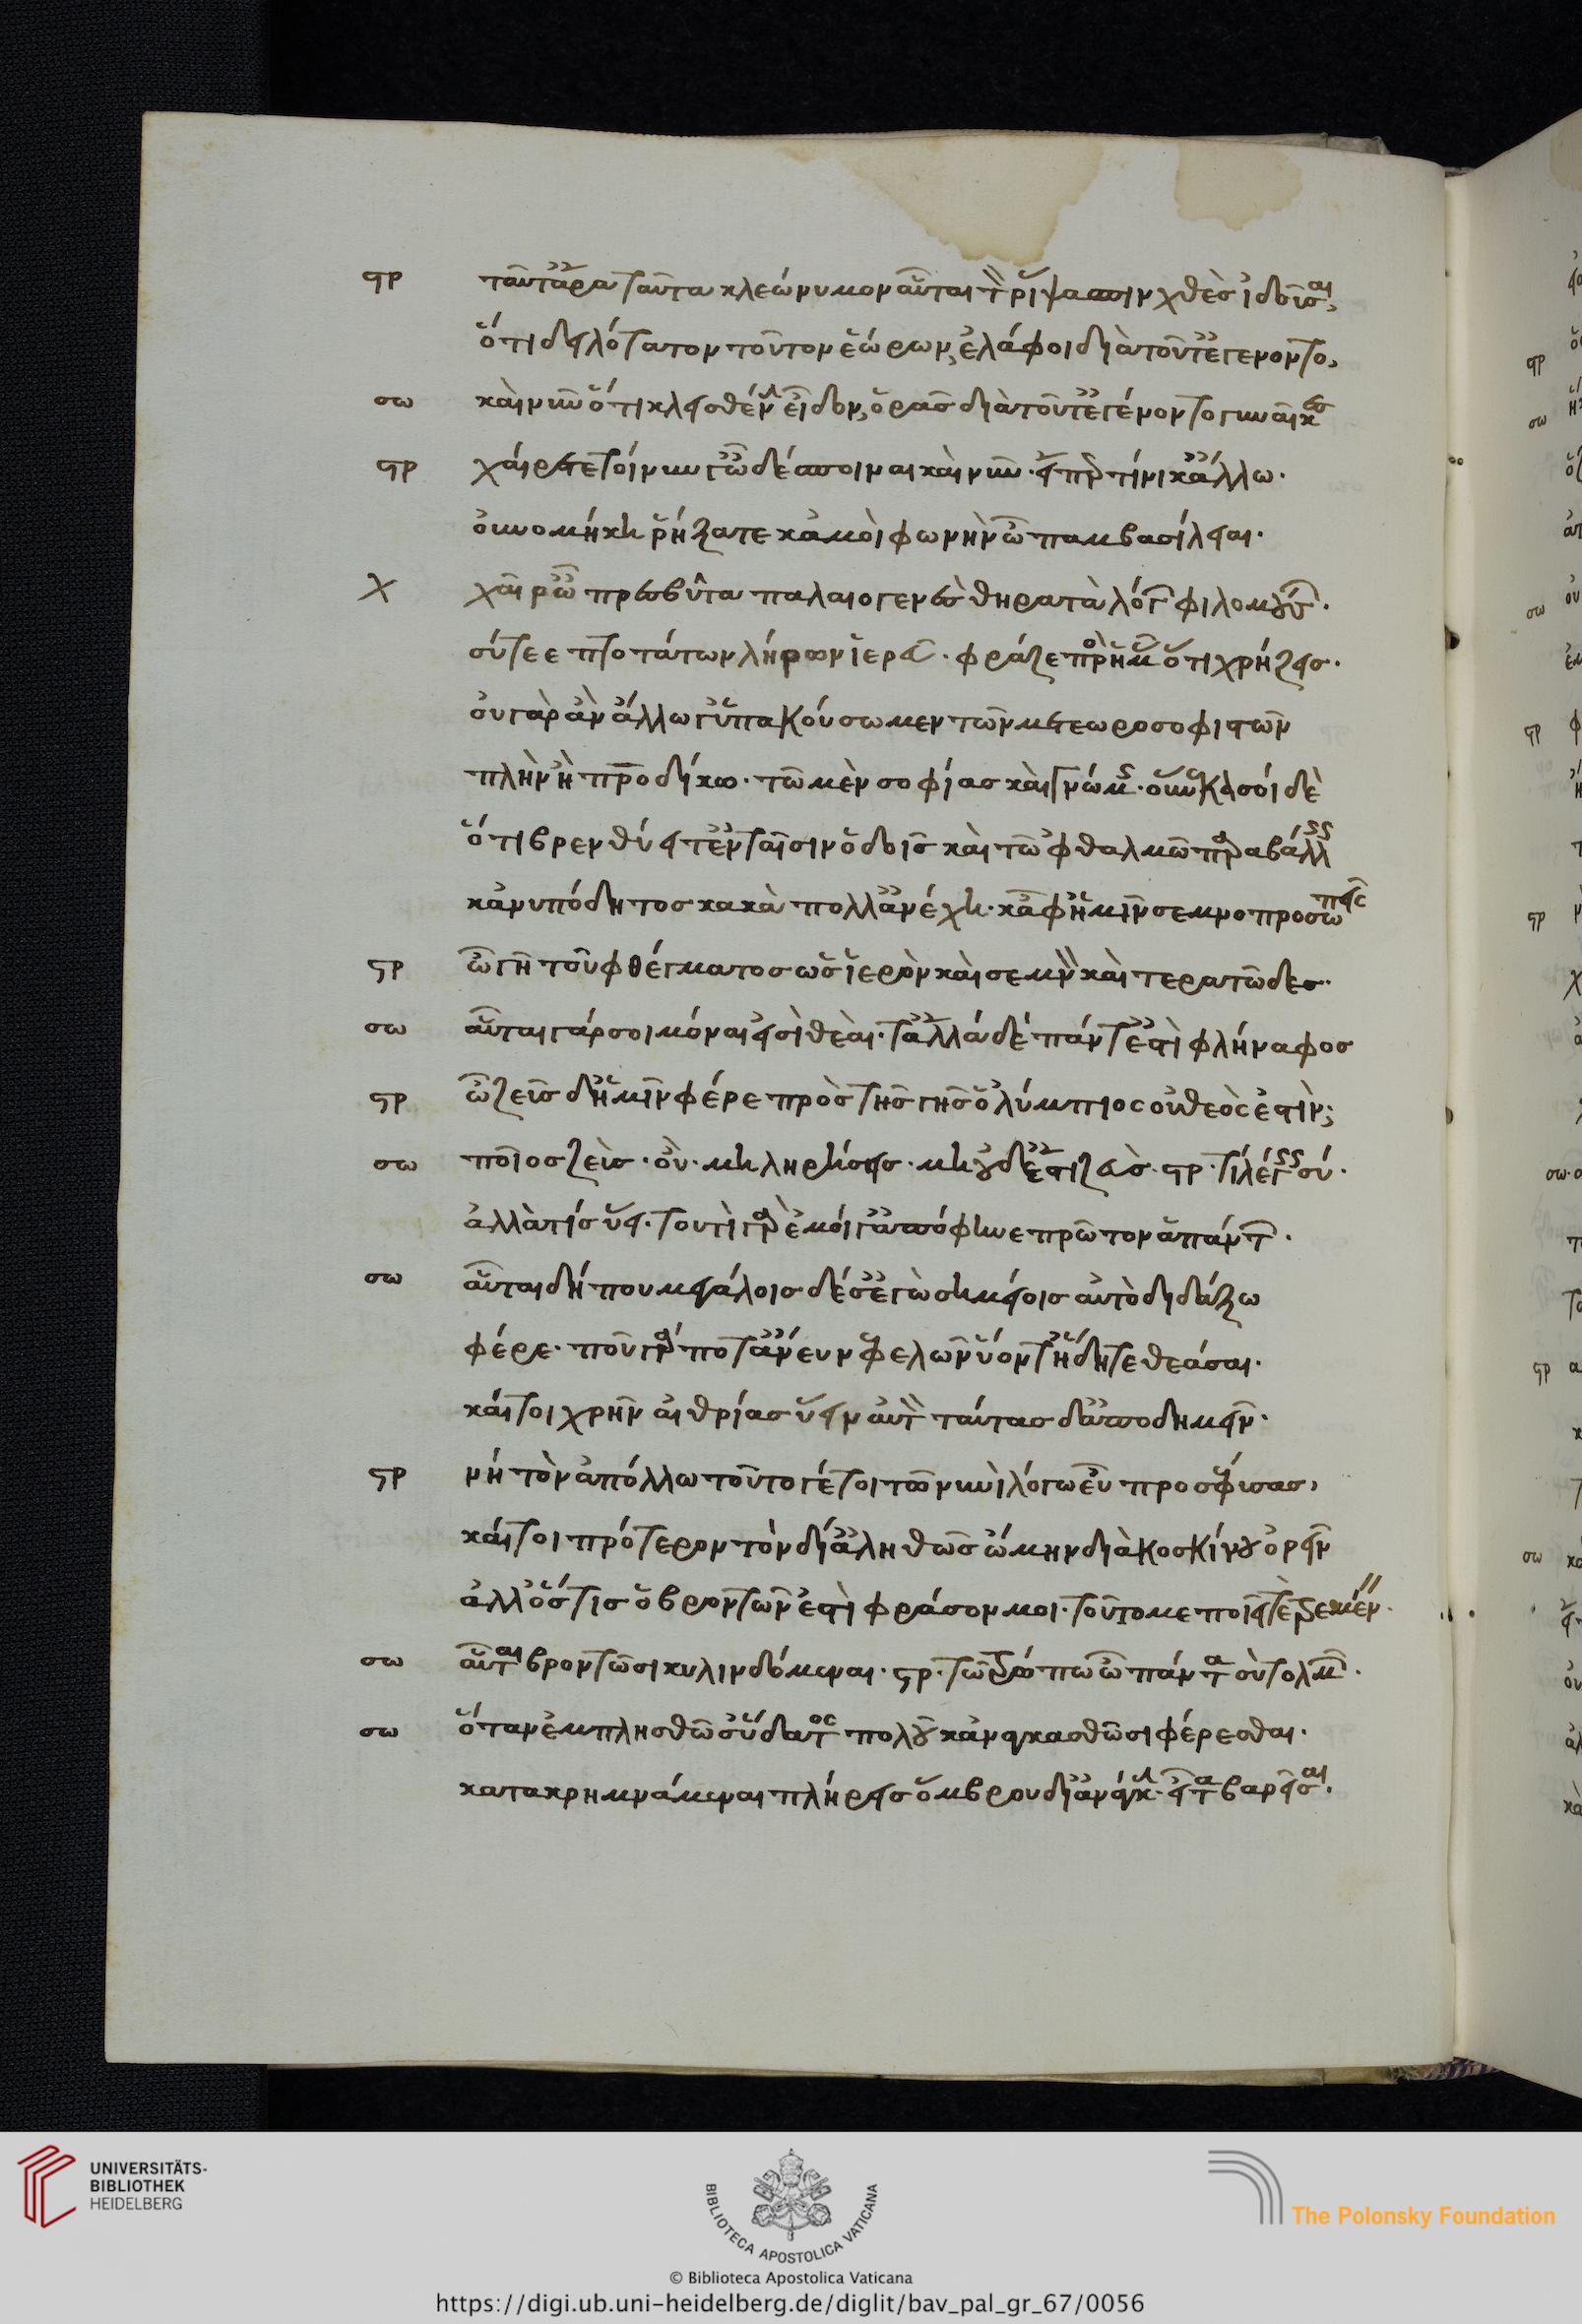 στρ ταῦτ' ἄρα ταῦτα κλεώνυμον αὗται τὸν ῥίψασπιν χθὲς ἰδοῦσαι,
ὅτι δειλότατον τοῦτον ἑώρων, ἔλαφοι διὰ τοῦτ' ἐγένοντο,
σω καὶ νῦν ὅτι κλεισθένην εἶδον, ὁρᾷς διὰ τοῦτ' ἐγένοντο γυναῖκες
στρ χαίρετε τοίνυν ὦ δέσποιναι καὶ νῦν εἴπερ τινὶ κἄλλῳ.
οὐνομήκη ῥήξατε κἀμοὶ φωνὴν ὦ παμβασίλειαι.
χ χαῖρ' ὦ πρεσβῦτα παλαιογενὲς θηρατὰ λόγων φιλομούσων.
σύ τε λεπτοτάτων λήρων ἱερεῦ. φράζε πρὸς ἡμᾶς ὅτι χρῄζεις.
οὐ γὰρ ἂν ἄλλῳ γ' ὑπακούσωμεν τῶν μετεωροσοφιστῶν
πλὴν ἢ προδίκῳ. τῷ μὲν σοφίας καὶ γνώμης οὕνεκα σοὶ δὲ
ὅτι βρενθύει τ' ἐν ταῖσιν ὁδοῖς καὶ τὠφθαλμὼ παραβάλλεις
κἀνυπόδητος κακὰ πόλλ' ἀνέχῃ. κἀφ' ἡμῖν σεμνοπροσωπεῖς
στρ ὦ γῆ τοῦ φθέγματος ὡς ἱερὸν καὶ σεμνὸν καὶ τερατῶδες.
σω αὗται γάρ σοι μόναι εἰσὶ θεαί. τἄλλα δὲ πάντ' ἐστὶ φλήναφος
στρ ὦ ζεῦς δ' ἡμῖν φέρε πρὸς τῆς γῆς ὀλύμπιος οὐ θεός ἐστιν;
σω ποῖος ζεύς. οὐ μὴ ληρήσεις. μὴ οὐδ' ἔστι ζεύς. στρ. τί λέγεις σύ.
ἀλλὰ τίς ὕει. τουτὶ γὰρ ἐμοί γ' ἀπόφηνε πρῶτον ἁπάντων.
σω αὗται δήπου μεγάλοις δέ σ' ἐγὼ σημείοις αὐτὸ διδάξω
φέρε. ποῦ γὰρ πώποτ' ἄνευ νεφελῶν ὕοντ' ἤδη τεθέασαι.
καίτοι χρῆν αἰθρίας ὕειν αὐτὸν ταύτας δ' ἀποδημεῖν.
στρ νὴ τὸν ἀπόλλω τοῦτο γέ τοι τῷ νυνὶ λόγῳ εὖ προσέφυσας,
καίτοι πρότερον τὸν δί' ἀληθῶς ᾤμην διὰ κοσκίνου οὐρεῖν
ἀλλ' ὅστις ὁ βροντῶν ἐστὶ φράσον μοι. τοῦτό με ποιεῖ τετρεμαίνειν.
σω αὗται βροντῶσι κυλινδόμεναι. στρ. τῷ τρόπῳ ὦ πάντα σὺ τολμῶν.
σω ὅταν ἐμπλησθῶσ' ὕδατος πολλοῦ κἀναγκασθῶσι φέρεσθαι.
κατακρημνάμεναι πλήρεις ὄμβρου δι' ἀνάγκην. εἶτα βαρεῖαι.
UNIVERSITÄTS-
BIBLIOTHEK
HEIDELBERG
BIBLIOTECA APOSTOLICA VATICANA
The Polonsky Foundation
© Biblioteca Apostolica Vaticana
https://digi.ub.uni-heidelberg.de/diglit/bav_pal_gr_67/0056